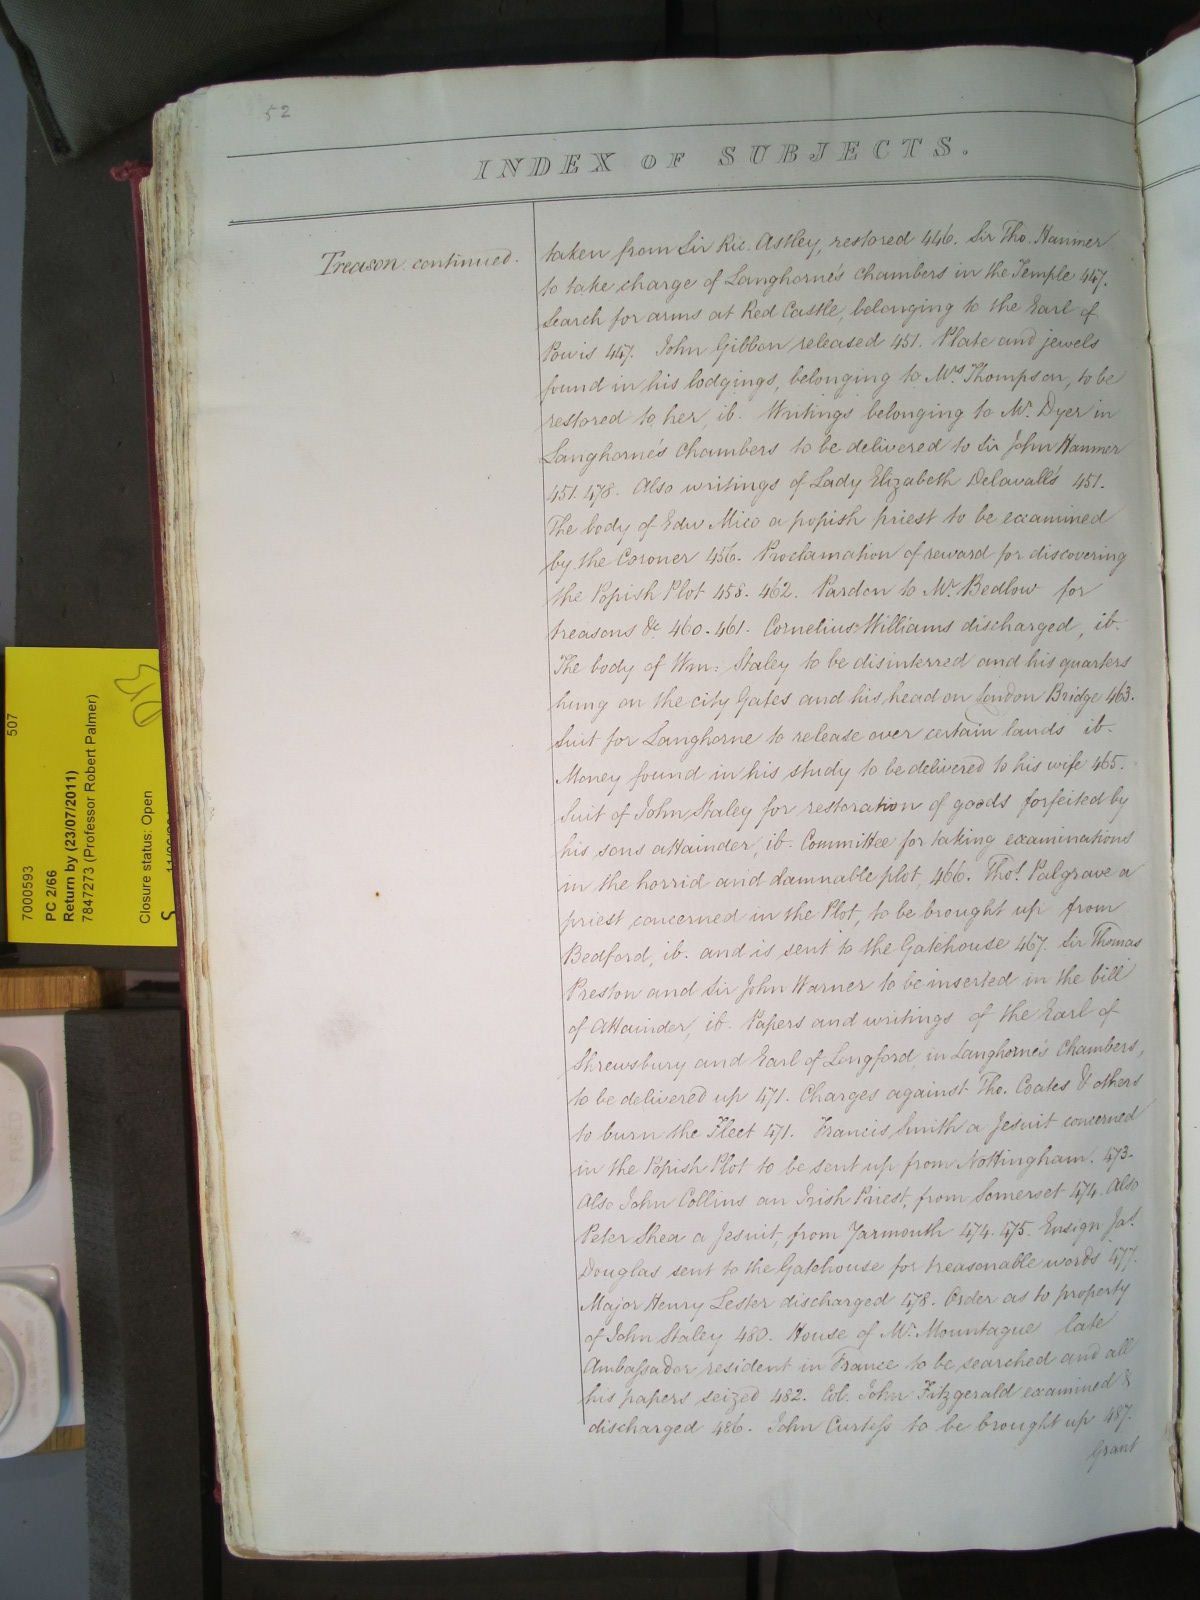 52
INDEX OF SUBJECTS.
Treason continued.
taken from Sir Ric. Astley, restored 446. Sir Tho. Hanmer
to take charge of Langhorne's Chambers in the Temple 447.
Search for arms at Red Castle, belonging to the Earl of
Powis 447. John Gibbon released 451. Plate and jewels
found in his lodgings, belonging to Mrs Thompson, to be
restored to her, ib. Writings belonging to Mr. Dyer in
Langhorne's Chambers to be delivered to Sir John Hanmer
451. 478. Also writings of Lady Elizabeth Delavall's 451.
The body of Edw Mico a popish priest to be examined
by the Coroner 456. Proclamation of reward for discovering
the Popish Plot 458. 462. Pardon to Mr. Bedlow for
treasons &c 460. 461. Cornelius Williams discharged, ib.
The body of Wm: Staley to be disinterred and his quarters
hung on the city Gates and his head on London Bridge 463.
Suit for Langhorne to release over certain lands ib.
Money found in his study to be delivered to his wife 465.
Suit of John Staley for restoration of goods forfeited by
his sons attainder, ib. Committee for taking examinations
in the horrid and damnable plot, 466. Thos. Palgrave a
priest concerned in the Plot, to be brought up from
Bedford, ib. and is sent to the Gatehouse 467. Sir Thomas
Preston and Sir John Warner to be inserted in the bill
of Attainder, ib. Papers and writings of the Earl of
Shrewsbury and Earl of Longford, in Langhorne's Chambers,
to be delivered up 471. Charges against Tho. Coates & others
to burn the Fleet 471. Francis Smith a Jesuit concerned
in the Popish Plot to be sent up from Nottingham. 473.
Also John Collins an Irish Priest, from Somerset 474. Also
Peter Shea a Jesuit, from Yarmouth 474. 475. Ensign Jas.
Douglas sent to the Gatehouse for treasonable words 477.
Major Henry Lester discharged 478. Order as to property
of John Staley 480. House of Mr. Mountague late
Ambassador resident in France to be searched and all
his papers seized 482. Col. John Fitzgerald examined &
discharged 486. John Curtess to be brought up 487.
Grant
507
7000593
PC 2/66
Return by (23/07/2011)
7847273 (Professor Robert Palmer)
Closure status: Open